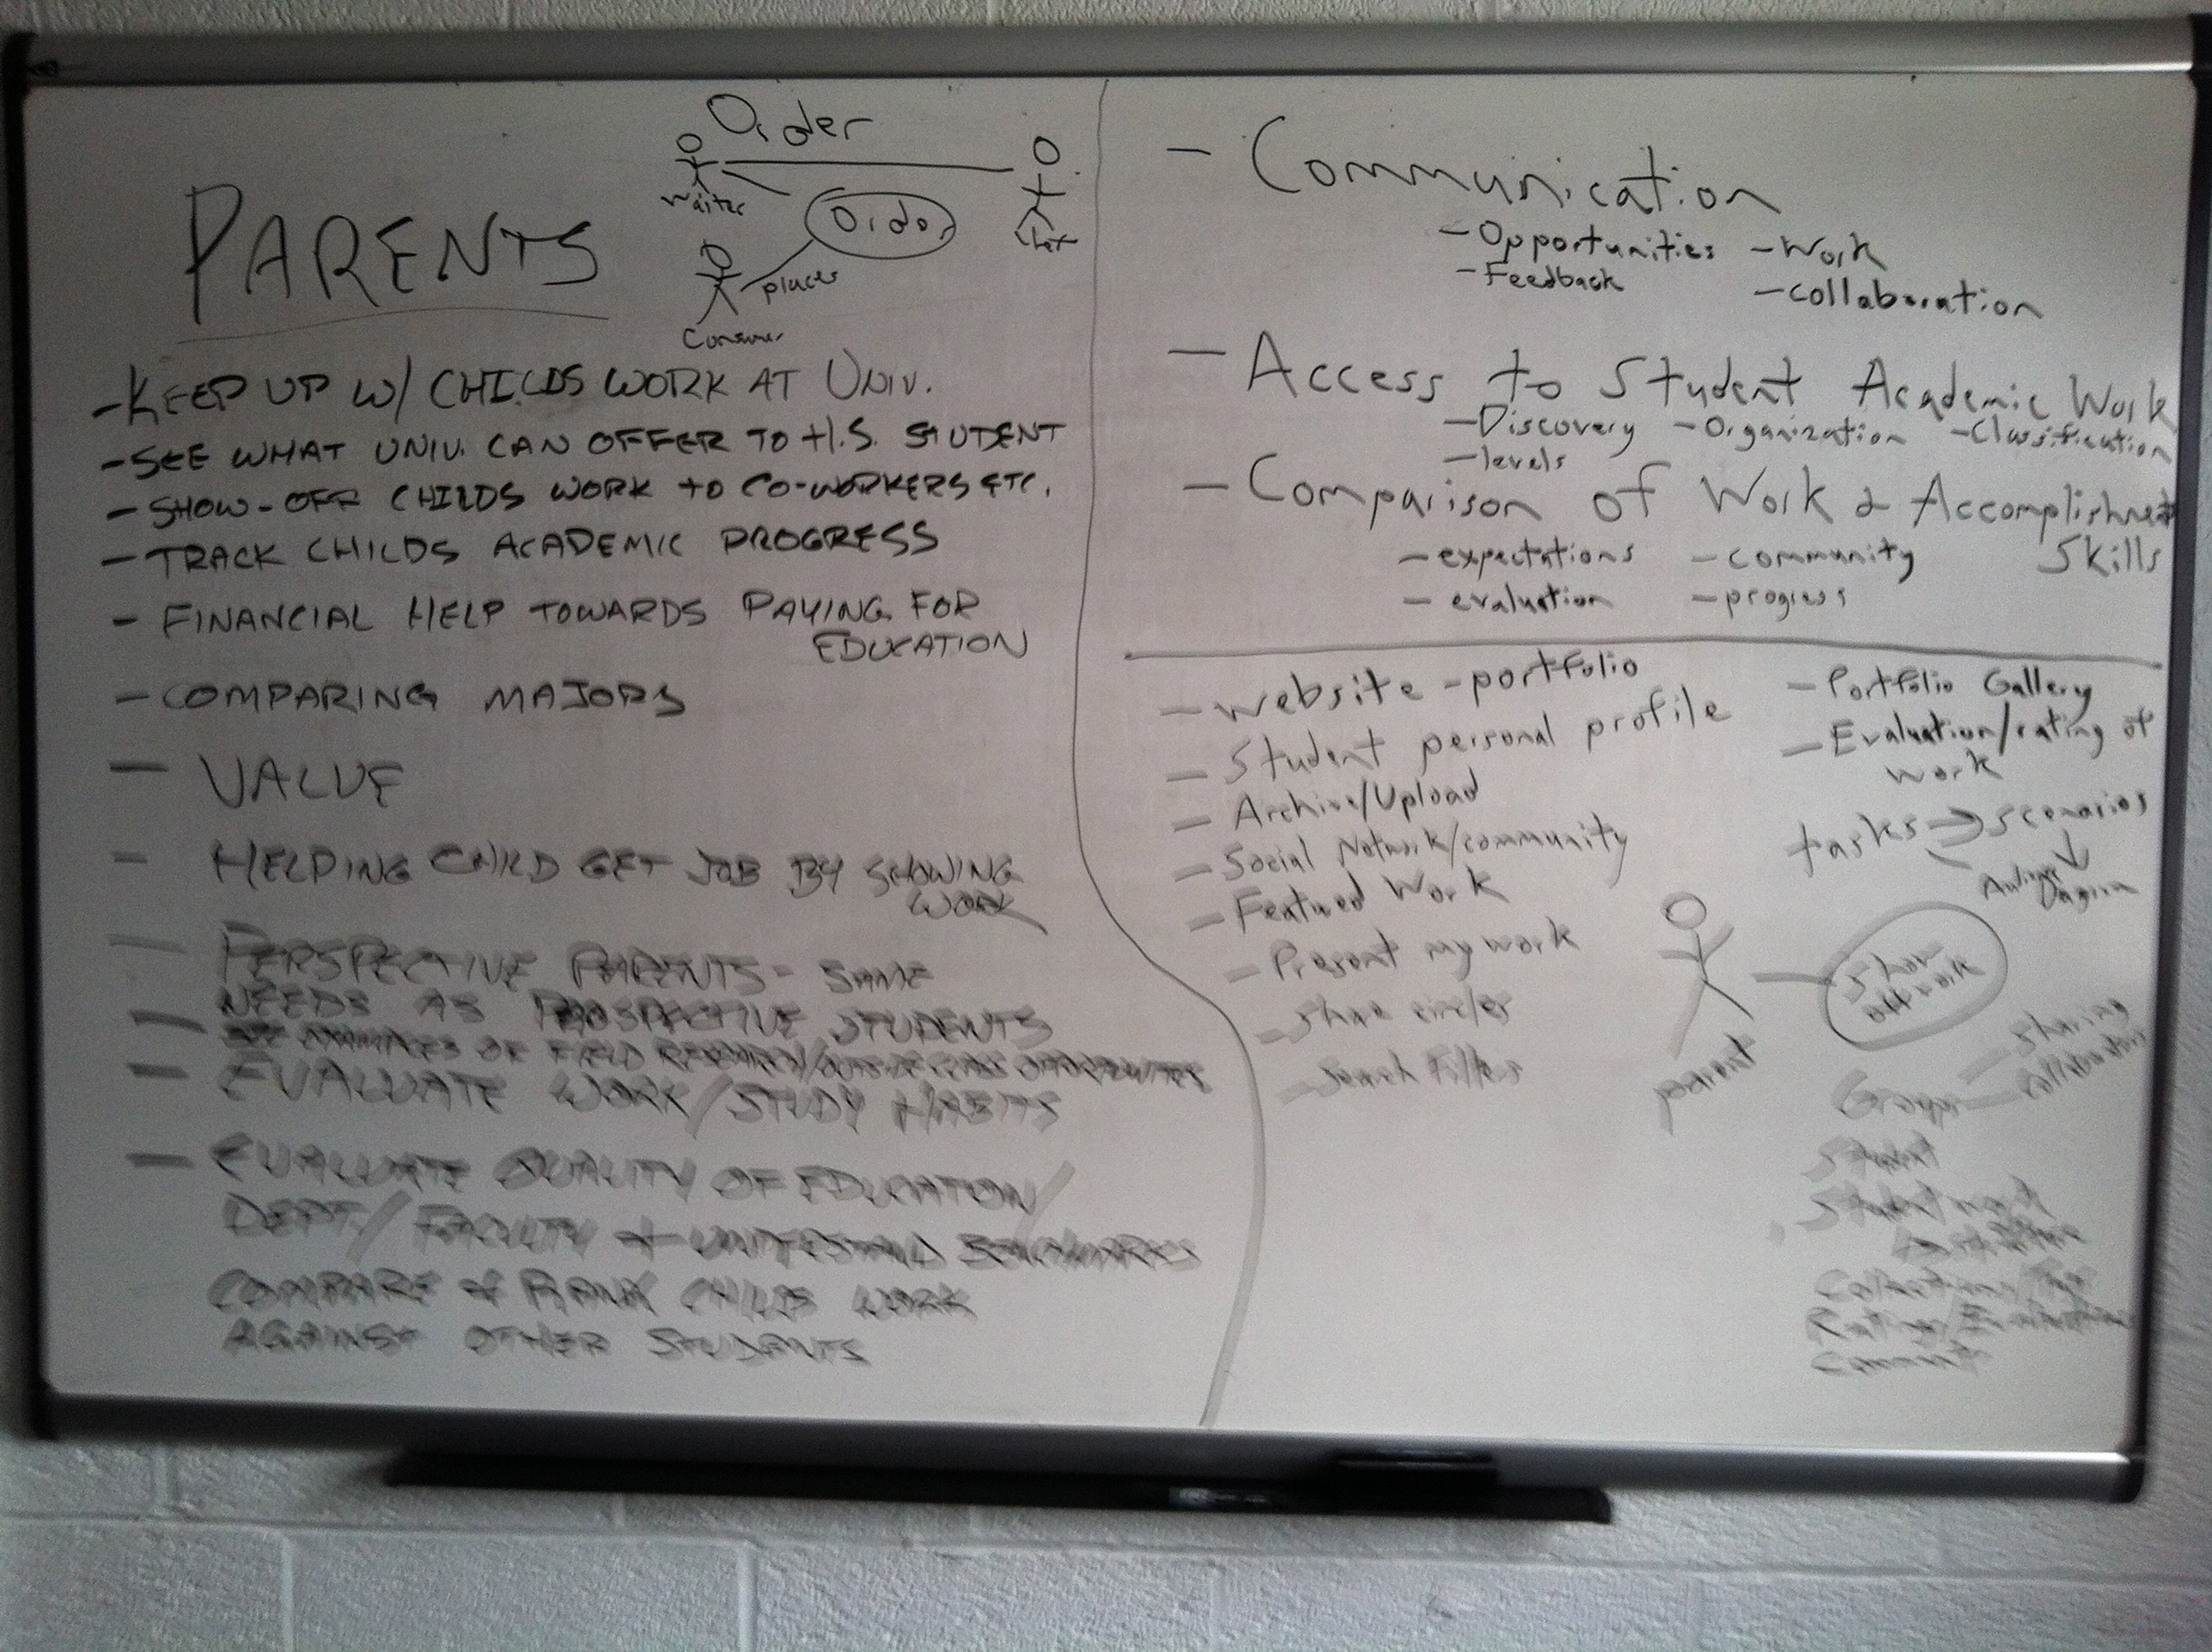 Order
Waiter
Order
Chef
PARENTS
places
Consumer
-KEEP UP W/ CHILDS WORK AT UNIV.
-SEE WHAT UNIV. CAN OFFER TO H.S. STUDENT
- SHOW-OFF CHILDS WORK TO CO-WORKERS ETC.
- TRACK CHILDS ACADEMIC PROGRESS
- FINANCIAL HELP TOWARDS PAYING FOR
EDUCATION
- COMPARING MAJORS
- VALUE
- HELPING CHILD GET JOB BY SHOWING
WORK
- PERSPECTIVE PARENTS - SAME
NEEDS AS PROSPECTIVE STUDENTS
- SEE EXAMPLES OF FIELD RESEARCH/OUTSIDE CLASS OPPORTUNITIES
- EVALUATE WORK/STUDY HABITS
- EVALUATE QUALITY OF EDUCATION/
DEPT./ FACULTY + UNDERSTAND BENCHMARKS
COMPARE & RANK CHILDS WORK
AGAINST OTHER STUDENTS
- Communication
- Opportunities - Work
- Feedback - collaboration
- Access to Student Academic Work
- Discovery - Organization - Classification
- levels
- Comparison of Work & Accomplishment
Skills
- expectations - community
- evaluation - progress
- website - portfolio
- Student personal profile
- Archive/Upload
- Social Network/community
- Featured Work
- Present my work
- Share circles
- Search Filters
- Portfolio Gallery
- Evaluation/rating of
work
tasks → scenarios
Show
off work
parent
- Sharing
Groups - collaboration
Student
Student work
Collections/Tags
Ratings/Evaluations
Comments